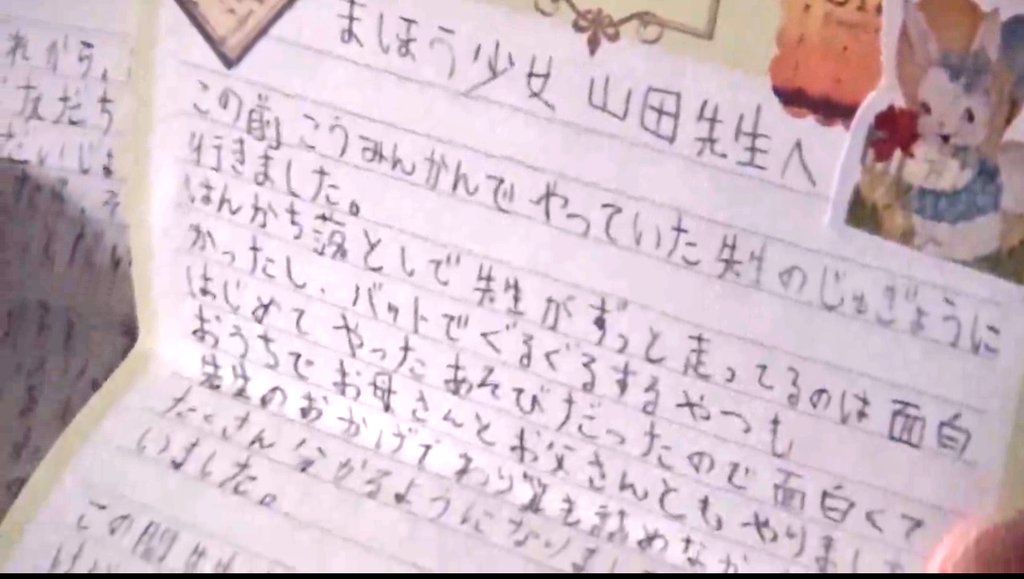 れから、
友だち
まほう少女 山田先生へ
この前こうみんかんでやっていた先生のじゅぎょうに
行きました。
はんかち落としで先生がずっと走ってるのは面白
かったし、バットでぐるぐるするやつも
はじめてやったあそびだったので面白くて
おうちでお母さんとお父さんともやりまし
先生のおかげでわり算も諦めな
たくさん分かるようになりまし
いました。
この間